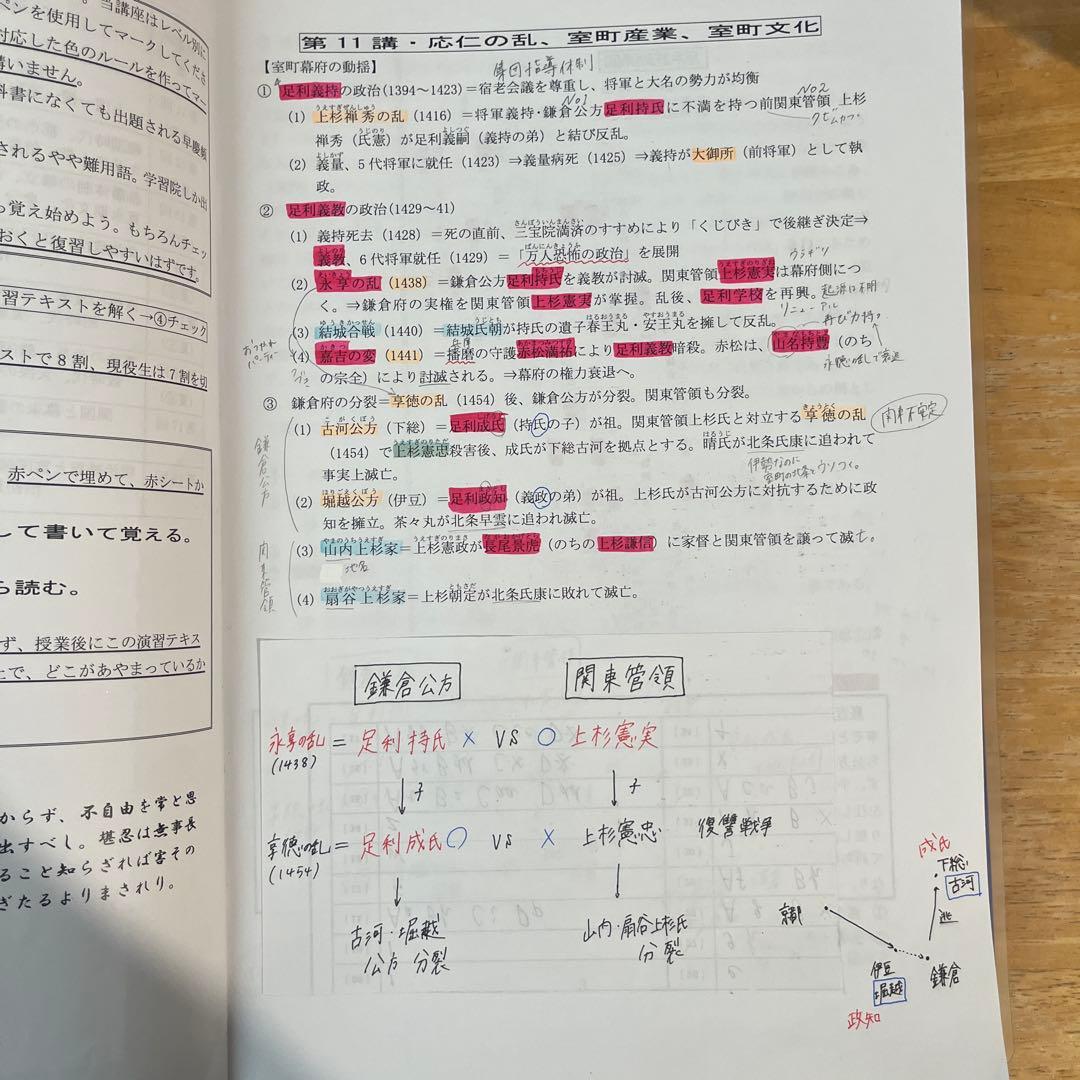 。当講座はレベル別に
ペンを使用してマークしてくださ
対応した色のルールを作ってマー
構いません。
科書になくても出題される早慶頻
されるやや難用語。学習院しか出
ら覚え始めよう。もちろんチェッ
おくと復習しやすいはずです。
習テキストを解く→④チェック
ストで8割、現役生は7割を切
赤ペンで埋めて、赤シートか
して書いて覚える。
ら読む。
ず、授業後にこの演習テキス
上で、どこがあやまっているか
からず、不自由を常と思
出すべし。堪忍は無事長
ること知らざれば害その
ぎたるよりまされり。
第11講・応仁の乱、室町産業、室町文化
【室町幕府の動揺】
集団指導体制
① 足利義持の政治(1394〜1423)=宿老会議を尊重し、将軍と大名の勢力が均衡
No1
No2
(1) 上杉禅秀の乱(1416)=将軍義持・鎌倉公方足利持氏に不満を持つ前関東管領 上杉
うえすぎぜんしゅう
クビムカつく
禅秀(氏憲)が足利義嗣(義持の弟)と結び反乱。
うじのり
よしつぐ
(2) 義量、5代将軍に就任(1423)⇒義量病死(1425)⇒義持が大御所(前将軍)として執
よしかず
政。
② 足利義教の政治(1429〜41)
(1) 義持死去(1428)=死の直前、三宝院満済のすすめにより「くじびき」で後継ぎ決定⇒
さんぽういんまんさい
義教、6代将軍就任(1429)=「万人恐怖の政治」を展開
よしのり
ばんにんきょうふ
ウラギリ
(2) 永享の乱(1438)=鎌倉公方足利持氏を義教が討滅。関東管領上杉憲実は幕府側につ
えいきょう
うえすぎのりざね
く。⇒鎌倉府の実権を関東管領上杉憲実が掌握。乱後、足利学校を再興。
起源は不明
リニューアル
(3) 結城合戦(1440)=結城氏朝が持氏の遺子春王丸・安王丸を擁して反乱。
ゆうきかっせん
うじとも
はるおうまる
やすおうまる
再び力持つ。
(4) 嘉吉の変(1441)=播磨の守護赤松満祐により足利義教暗殺。赤松は、山名持豊(のち
かきつ
兵庫
あかまつみつすけ
おつかれパーティー
の宗全)により討滅される。⇒幕府の権力衰退へ。
③ 鎌倉府の分裂=享徳の乱(1454)後、鎌倉公方が分裂。関東管領も分裂。
鎌倉公方
(1) 古河公方(下総)=足利成氏(持氏の子)が祖。関東管領上杉氏と対立する享徳の乱
こがくぼう
しげうじ
きょうとく
関東不安定
(1454)で上杉憲忠殺害後、成氏が下総古河を拠点とする。晴氏が北条氏康に追われて
うえすぎのりただ
はるうじ
事実上滅亡。
伊勢なのに
室町の北条とウソつく。
(2) 堀越公方(伊豆)=足利政知(義政の弟)が祖。上杉氏が古河公方に対抗するために政
ほりごえくぼう
知を擁立。茶々丸が北条早雲に追われ滅亡。
関東管領
(3) 山内上杉家=上杉憲政が長尾景虎(のちの上杉謙信)に家督と関東管領を譲って滅亡。
やまのうちうえすぎ
うえすぎのりまさ
地名
(4) 扇谷上杉家=上杉朝定が北条氏康に敗れて滅亡。
おおぎがやつうえすぎ
ともさだ
鎌倉公方 関東管領
永享の乱 = 足利持氏 × VS ○ 上杉憲実
(1438)
↓子 ↓子
享徳の乱 = 足利成氏 ○ VS × 上杉憲忠 復讐戦争
(1454)
古河・堀越 山内・扇谷上杉氏
公方 分裂 分裂
成氏
下総
古河
京都
逃
伊豆
堀越
鎌倉
政知